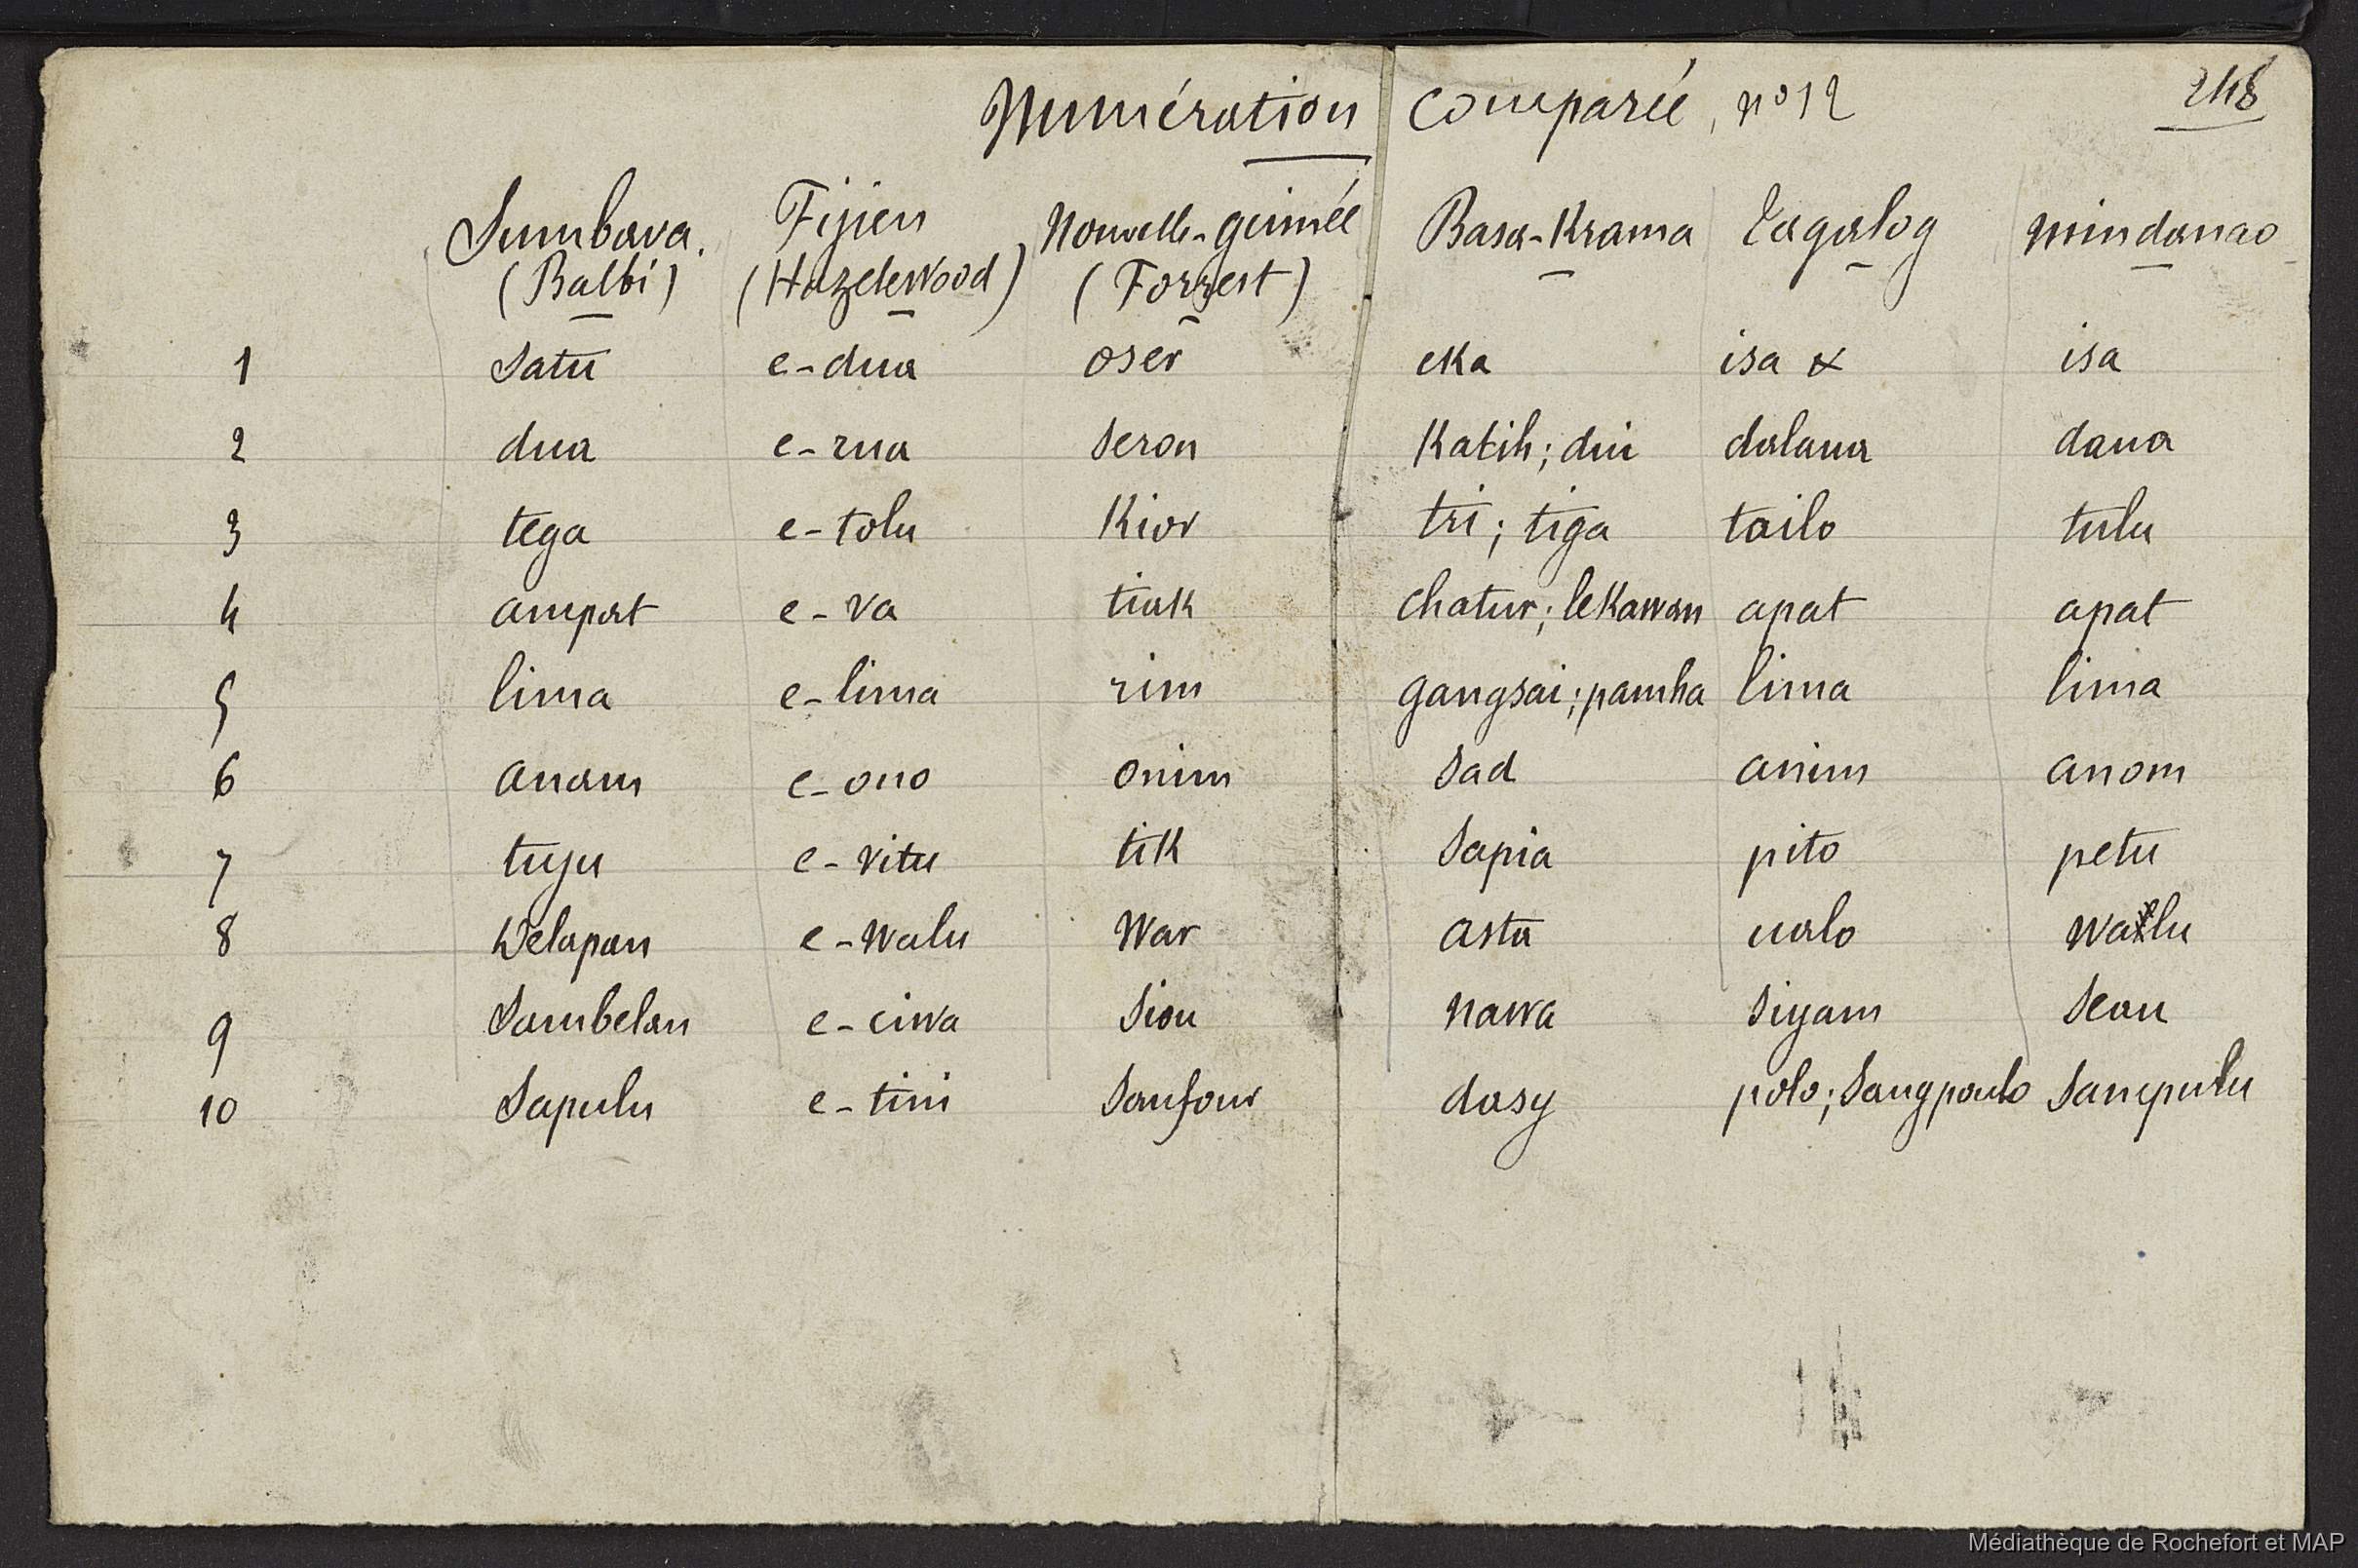 Numération comparée, n° 12 248
Sumbava. Fijien Nouvelle-guinée Basa-Krama Tagalog mindanao
(Balbi) (Hazelewood) (Forrest)
1 satu e-dua oser eka isa & isa
2 dua e-rua seron Katih; dui dalaua daua
3 tega e-tolu Kior tri; tiga tailo tulu
4 ampat e-va tiak chatur; lekawan apat apat
5 lima e-lima rim gangsai; pamha lima lima
6 anam e-ono onim sad anim anom
7 tuju e-vitu tik sapia pito petu
8 Delapan e-walu War asta ualo walu
9 Sambelan e-ciwa siou nawa siyam seau
10 Sapulu e-tini Sanfour dasy polo; Sangpoulo Sanpulu
Médiathèque de Rochefort et MAP